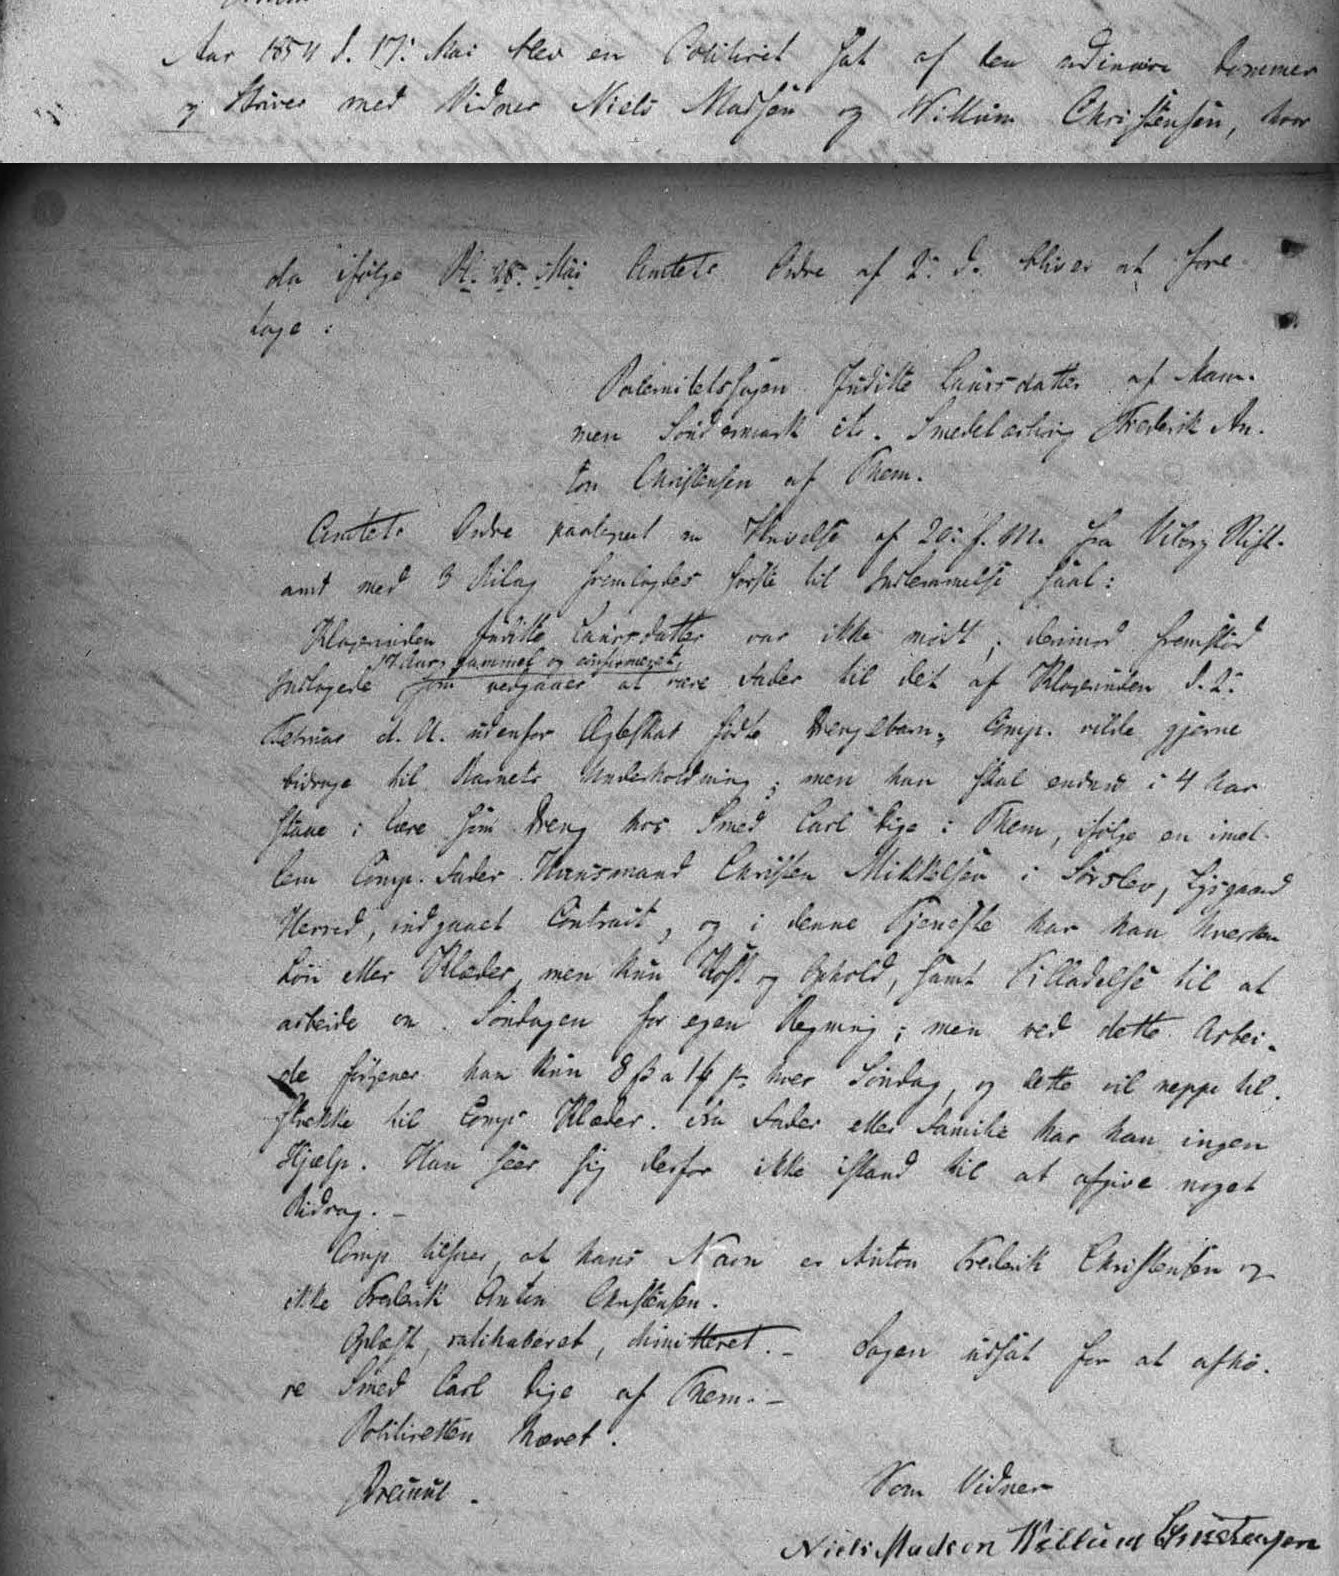 Aar 1854 d. 17: Mai blev en Politiret sat af den ordinaire Dommer
og Skriver med Vidner Niels Madsen og Willum Christensen, hvor
da ifølge Pl. 28. Mai Amtets Ordre af 2: d. bliver at fore-
tage :
Paternitetssagen Juditte Laursdatter af Mam-
men Søndermark ctr. Smedelærling Frederik An-
ton Christensen af Them.
Amtets Ordre paategnet en Skrivelse af 20: f. M. fra Viborg Stift-
amt med 3 Bilag fremlagdes første til Indlemmelse saal:
Klagerinden Juditte Laursdatter var ikke mødt; derimod fremstod
17 Aar gammel og confirmeret,
Indklagede som vedgaaer at være Fader til det af Klagerinden d. 2:
Februar d. A. udenfor Ægteskab fødte Drengebarn. Comp. vilde gjerne
bidrage til Barnets Underholdning; men han skal endnu i 4 Aar
staae i Lære som Dreng hos Smed Carl Dige i Them, ifølge en imel-
lem Comp. Fader Huusmand Christen Mikkelsen i Sørslev, Lysgaard
Herred, indgaaet Contract, og i denne Tjeneste har han hverken
Løn eller Klæder, men kun Kost og Ophold, samt Tilladelse til at
arbeide om Søndagen for egen Regning; men ved dette Arbei-
de fortjener han kun 8 ß a 1 hver Søndag, og dette vil neppe til-
strække til Comps Klæder. Fra Fader eller Familie har han ingen
Hjælp. Han seer sig derfor ikke istand til at afgive noget
Bidrag. –
Comp tilføier, at hans Navn er Anton Frederik Christensen og
ikke Frederik Anton Christensen.
Oplæst, ratihaberet, dimitteret. – Sagen udsat for at afhø-
re Smed Carl Dige af Them. –
Politiretten hævet.
Som Vidner
Niels Madsen Willum Christensen